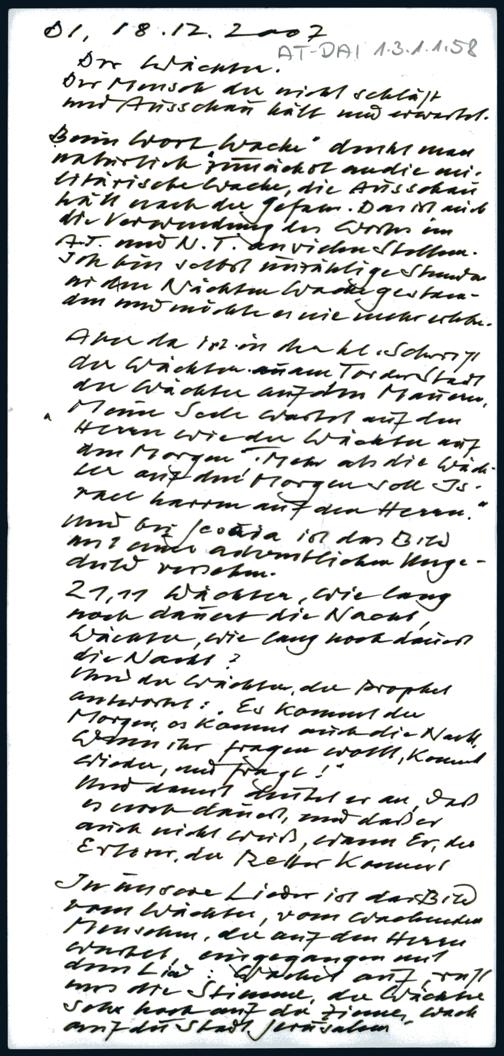 DI, 18.12.2007
AT-DAI 1.3.1.1.58
Der Wächter.
Der Mensch der nicht schläft
und Ausschau hält und erwartet.
Beim Wort "Wache" denkt man
natürlich zunächst an die mi-
litärische Wache, die Ausschau
hält nach der Gefahr. Das ist auch
die Verwendung des Worts im
A.T. und N.T. an vielen Stellen.
Ich bin selbst unzählige Stunden
in den Nächten Wache gestan-
den und möchte es nie mehr erleben.
Aber da ist in der hl. Schrift
der Wächter am Tor der Stadt
der Wächter auf den Mauern.
"Meine Seele wartet auf den
Herrn wie der Wächter auf
den Morgen. Mehr als die Wäch-
ter auf den Morgen soll Is-
rael harren auf den Herrn."
Und bei Jesaia ist das Bild
mit einer adventlichen Unge-
duld versehen.
21,11 Wächter, wie lang
noch dauert die Nacht,
Wächter, wie lang noch dauert
die Nacht?
Und der Wächter, der Prophet
antwortet: "Es kommt der
Morgen, es kommt auch die Nacht,
Wenn ihr fragen wollt, kommt
wieder, und fragt!"
Und damit deutet er an, daß
es noch dauert, und daß er
auch nicht weiß, wann Er, der
Erlöser, der Retter kommt
In unsere Lieder ist das Bild
vom Wächter, vom wachenden
Menschen, der auf den Herrn
wartet, eingegangen mit
dem Lied: Wachet auf, ruft
uns die Stimme, der Wächter
sehr hoch auf der Zinne, wach
auf du Stadt Jerusalem